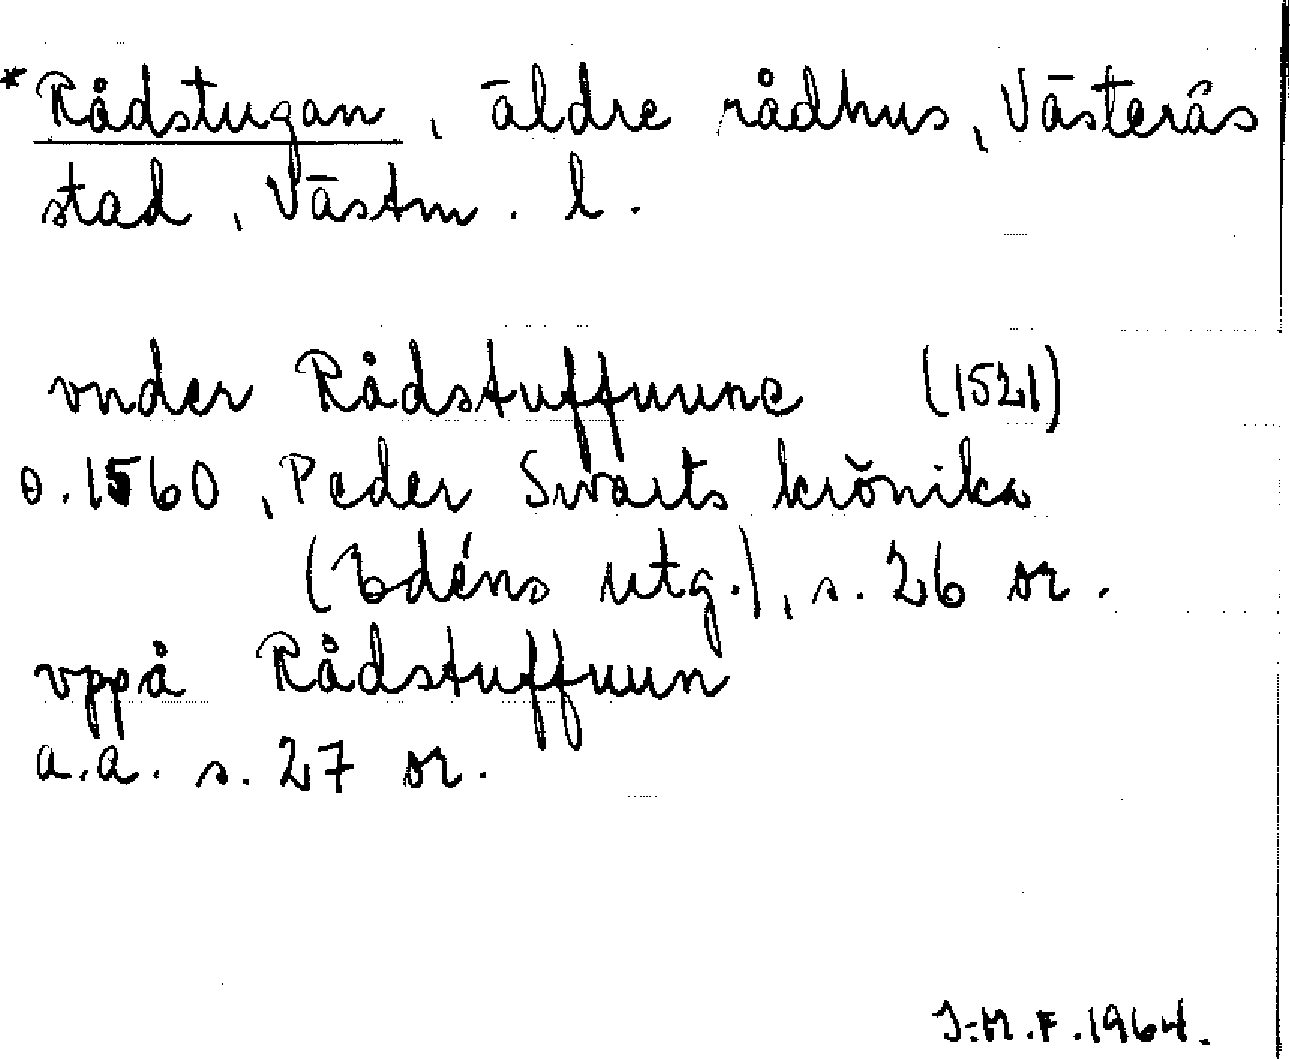 *Rådstugan, äldre rådhus, Västerås
stad, Västm. l.
vnder Rådstuffuune (1521)
o. 1560, Peder Swarts krönika
(Edéns utg.), s. 26 or.
vppå Rådstuffuun
a.a. s. 27 or.
I:M.F. 1964.